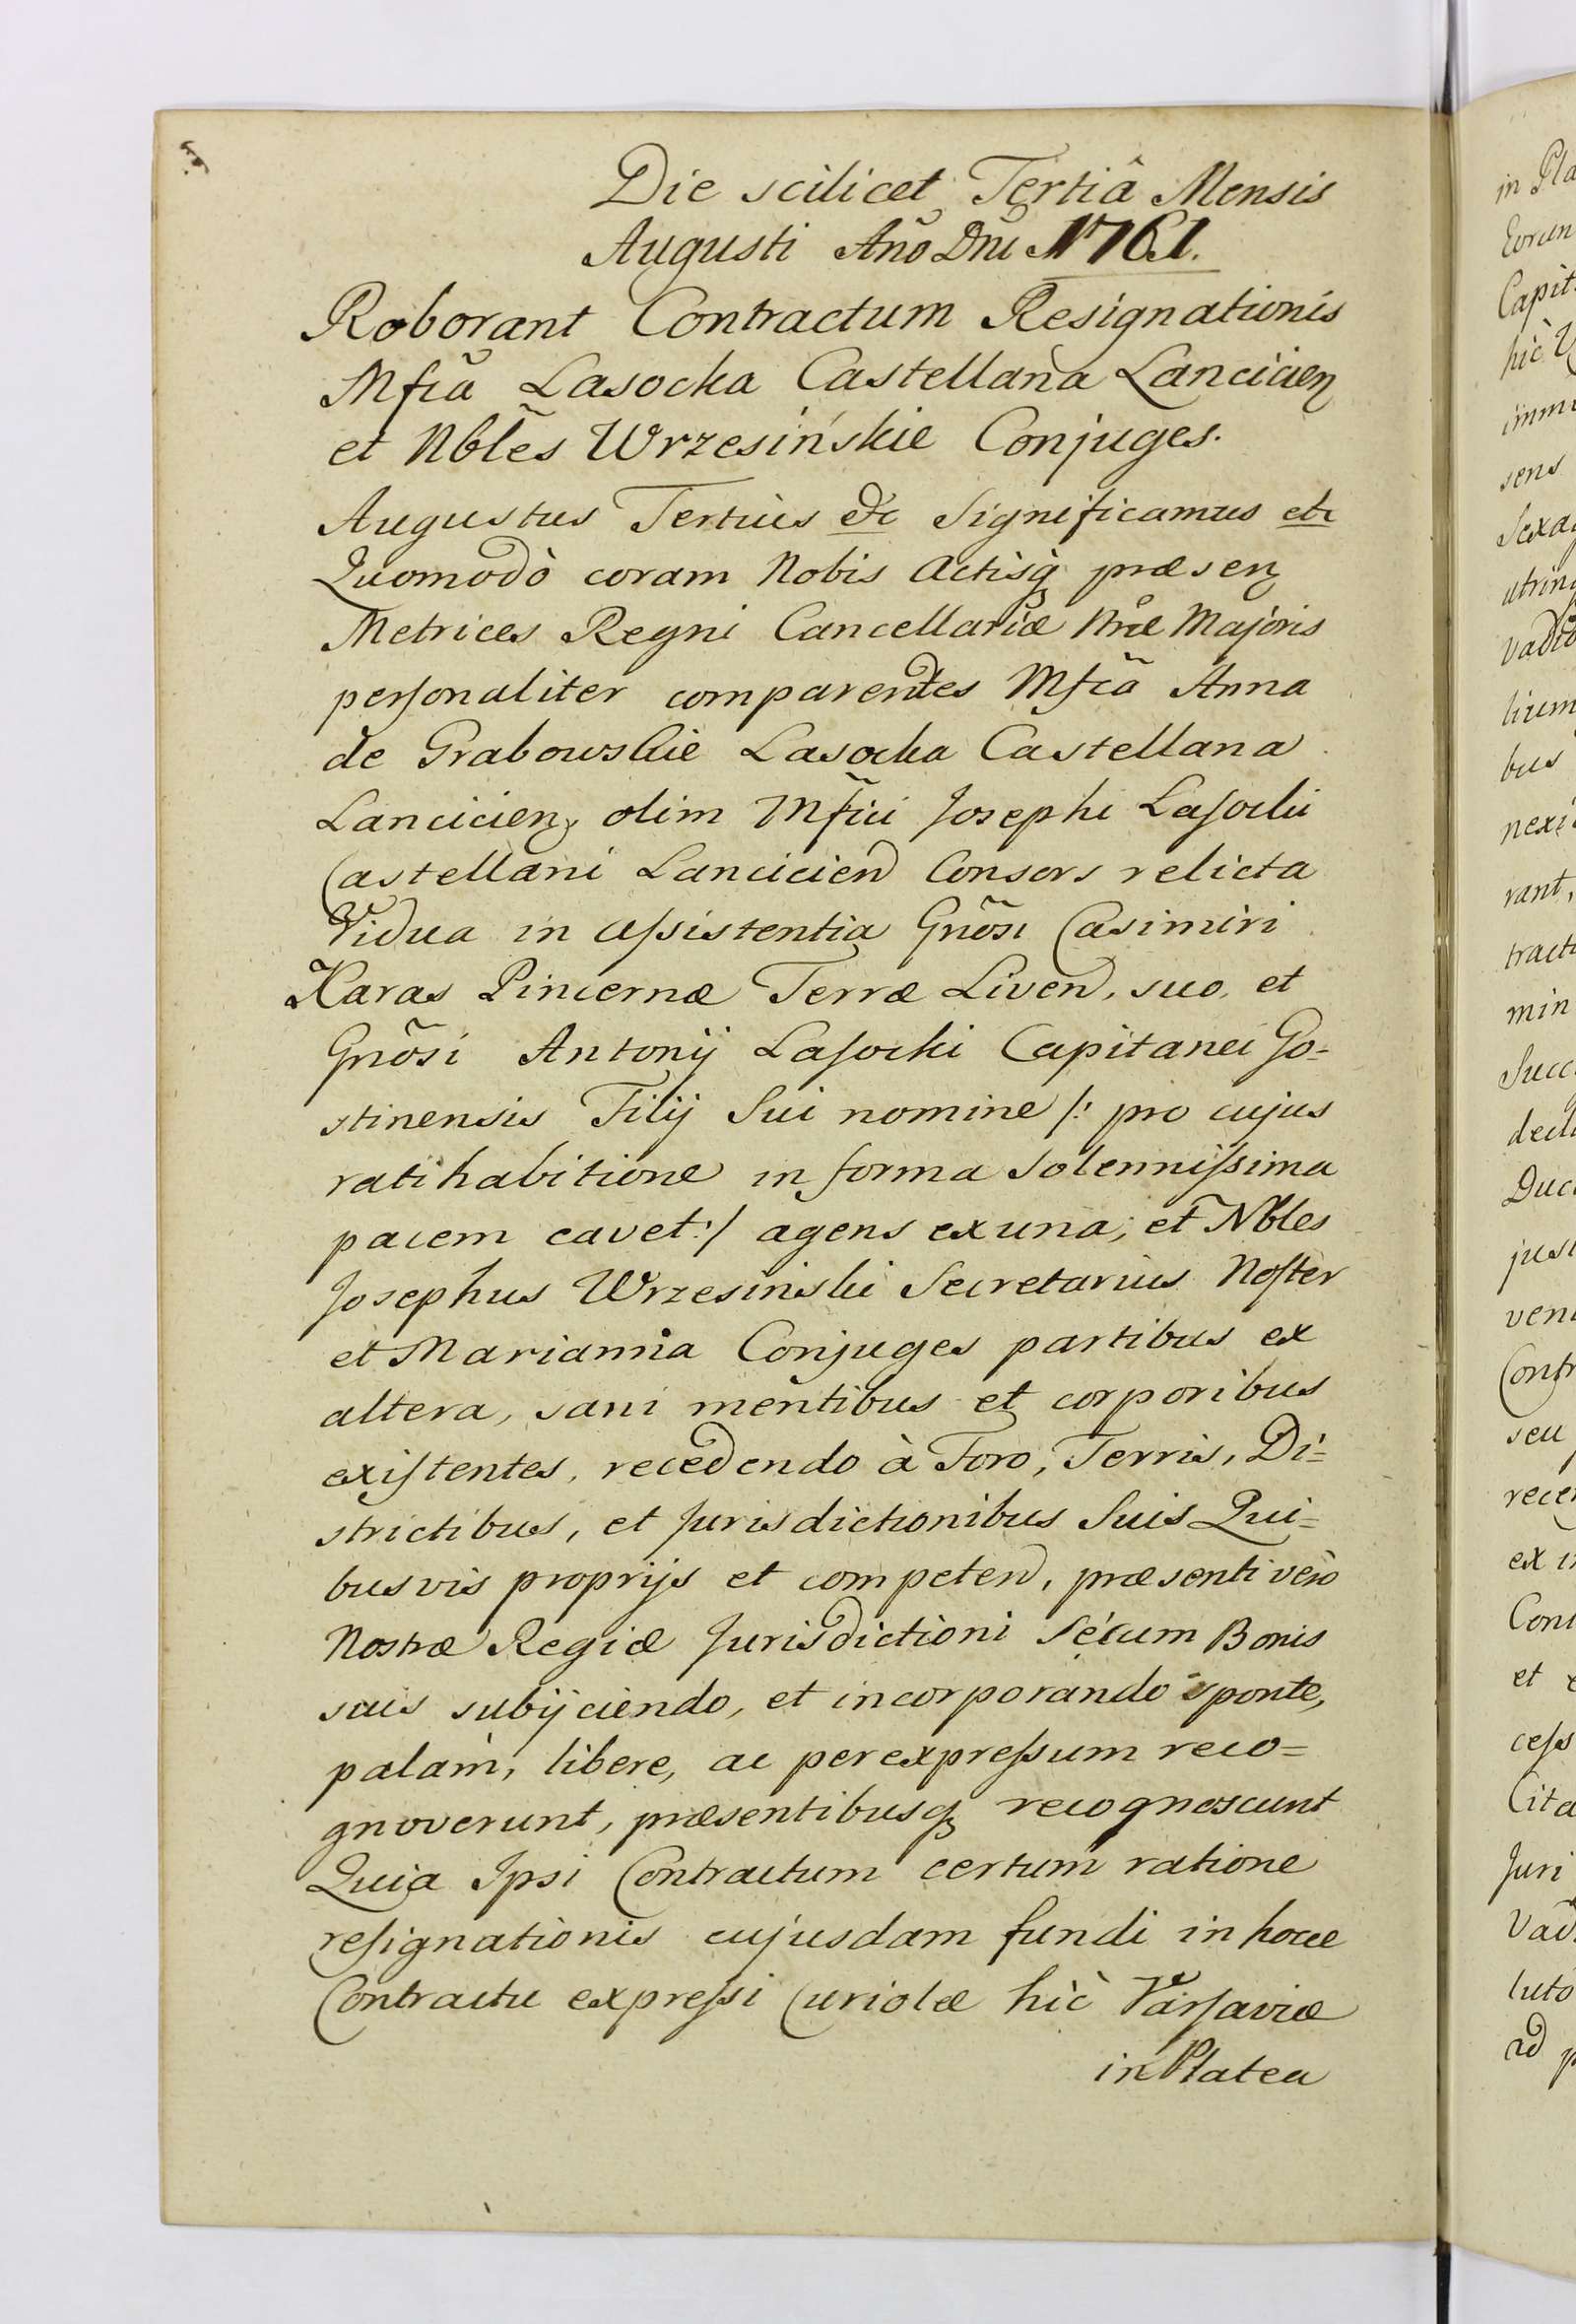 Die scilicet Tertiâ Mensis
Augusti Año Dni 1761.
Roborant Contractum Resignationis
Mfcã Lasocka Castellana Lancicien
et Nblẽs Wrzesińskie Conjuges.
Augustus Tertius &c Significamus etc
Quomodò coram Nobis Actisq præsen
Metrices Regni Cancellariæ Nræ Majoris
personaliter comparentes Mfcã Anna
de Grabowskie Lasocka Castellana
Lancicien, olim Mfici Josephi Lasocki
Castellani Lancicien Consors relicta
Vidua in assistentia Gnõsi Casimiri
Karas Pincernæ Terræ Liven, suo, et
Gnõsi Antonij Lasocki Capitanei Go=
stinensis Filij Sui nomine /: pro cujus
ratihabitione in forma solennissima
pacem cavet :/ agens ex una, et Nbles
Josephus Wrzesinski Secretarius Noster
et Marianna Conjuges partibus ex
altera, sani mentibus et corporibus
existentes, recedendo à Foro, Terris, Di=
strictibus, et Jurisdictionibus Suis Qui=
busvis proprijs et competen, præsenti verò
Nostræ Regiæ Jurisdictioni Sècum Bonis
suis subijciendo, et incorporando sponte,
palam, libere, ac per expressum reco=
gnoverunt, præsentibusq recognoscunt
Quia Ipsi Contractum certum ratione
resignationis cujusdam fundi in hocce
Contractu expressi Curiolæ hìc Varsaviæ
in Platea
in Pla
Eorun
Capit.
hìc
sens
Sexag
utrinq
lium
bus
rant,
tract
min
Succ
decl
Duc
just
veni
Contr
seu
rece
ex i
et
cess
Cita
Juri
Vad
luto
ad p